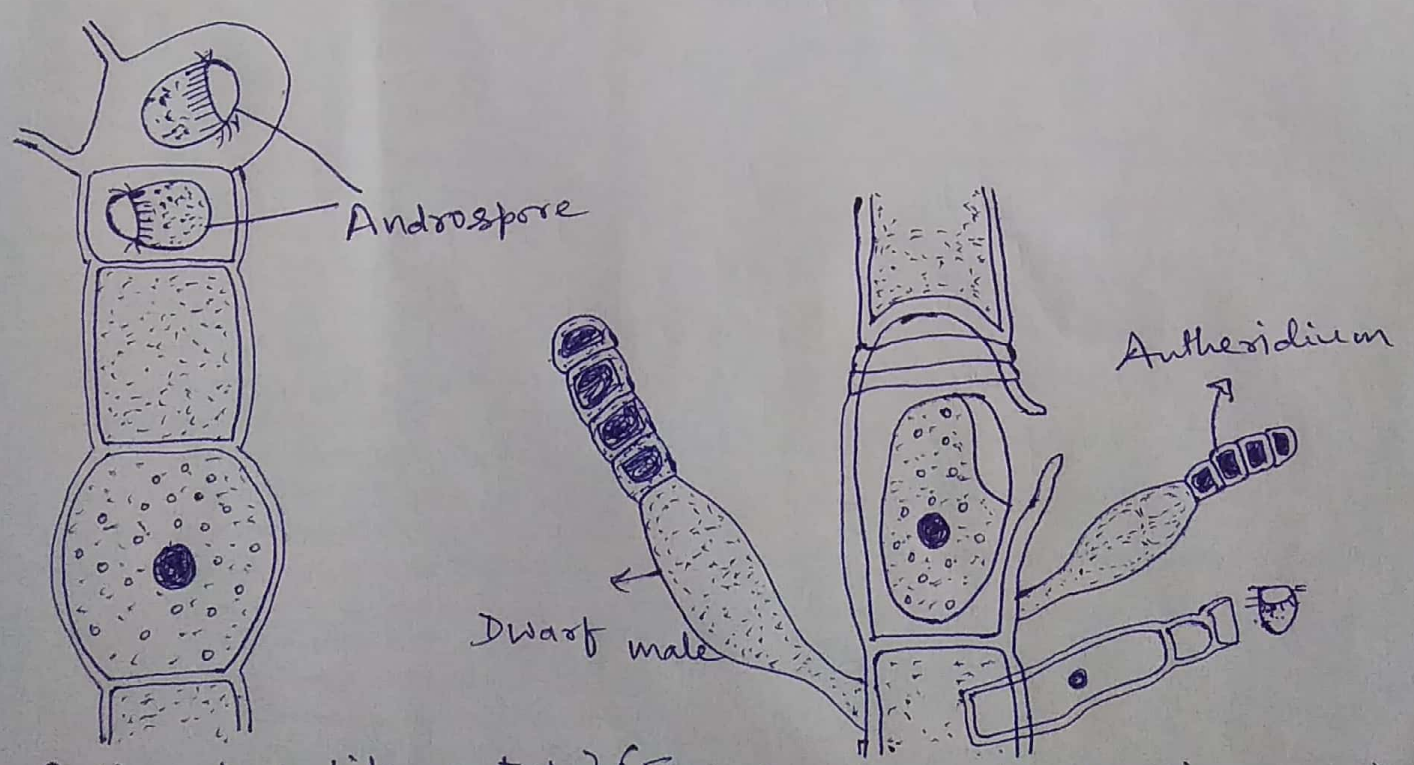 Androspore
Antheridium
Dwarf male